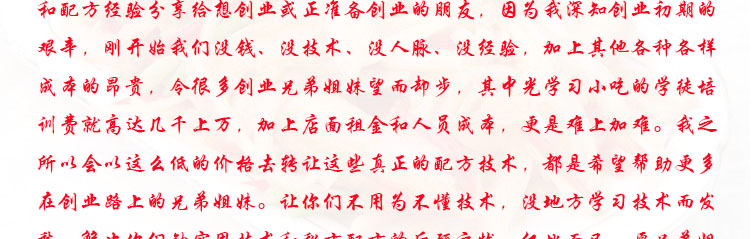 和配方经验分享给想创业或正准备创业的朋友，因为我深知创业初期的
艰辛，刚开始我们没钱、没技术、没人脉、没经验，加上其他各种各样
成本的昂贵，令很多创业兄弟姐妹望而却步，其中光学习小吃的学徒培
训费就高达几千上万，加上店面租金和人员成本，更是难上加难。我之
所以会以这么低的价格去转让这些真正的配方技术，都是希望帮助更多
在创业路上的兄弟姐妹。让你们不用为不懂技术，没地方学习技术而发